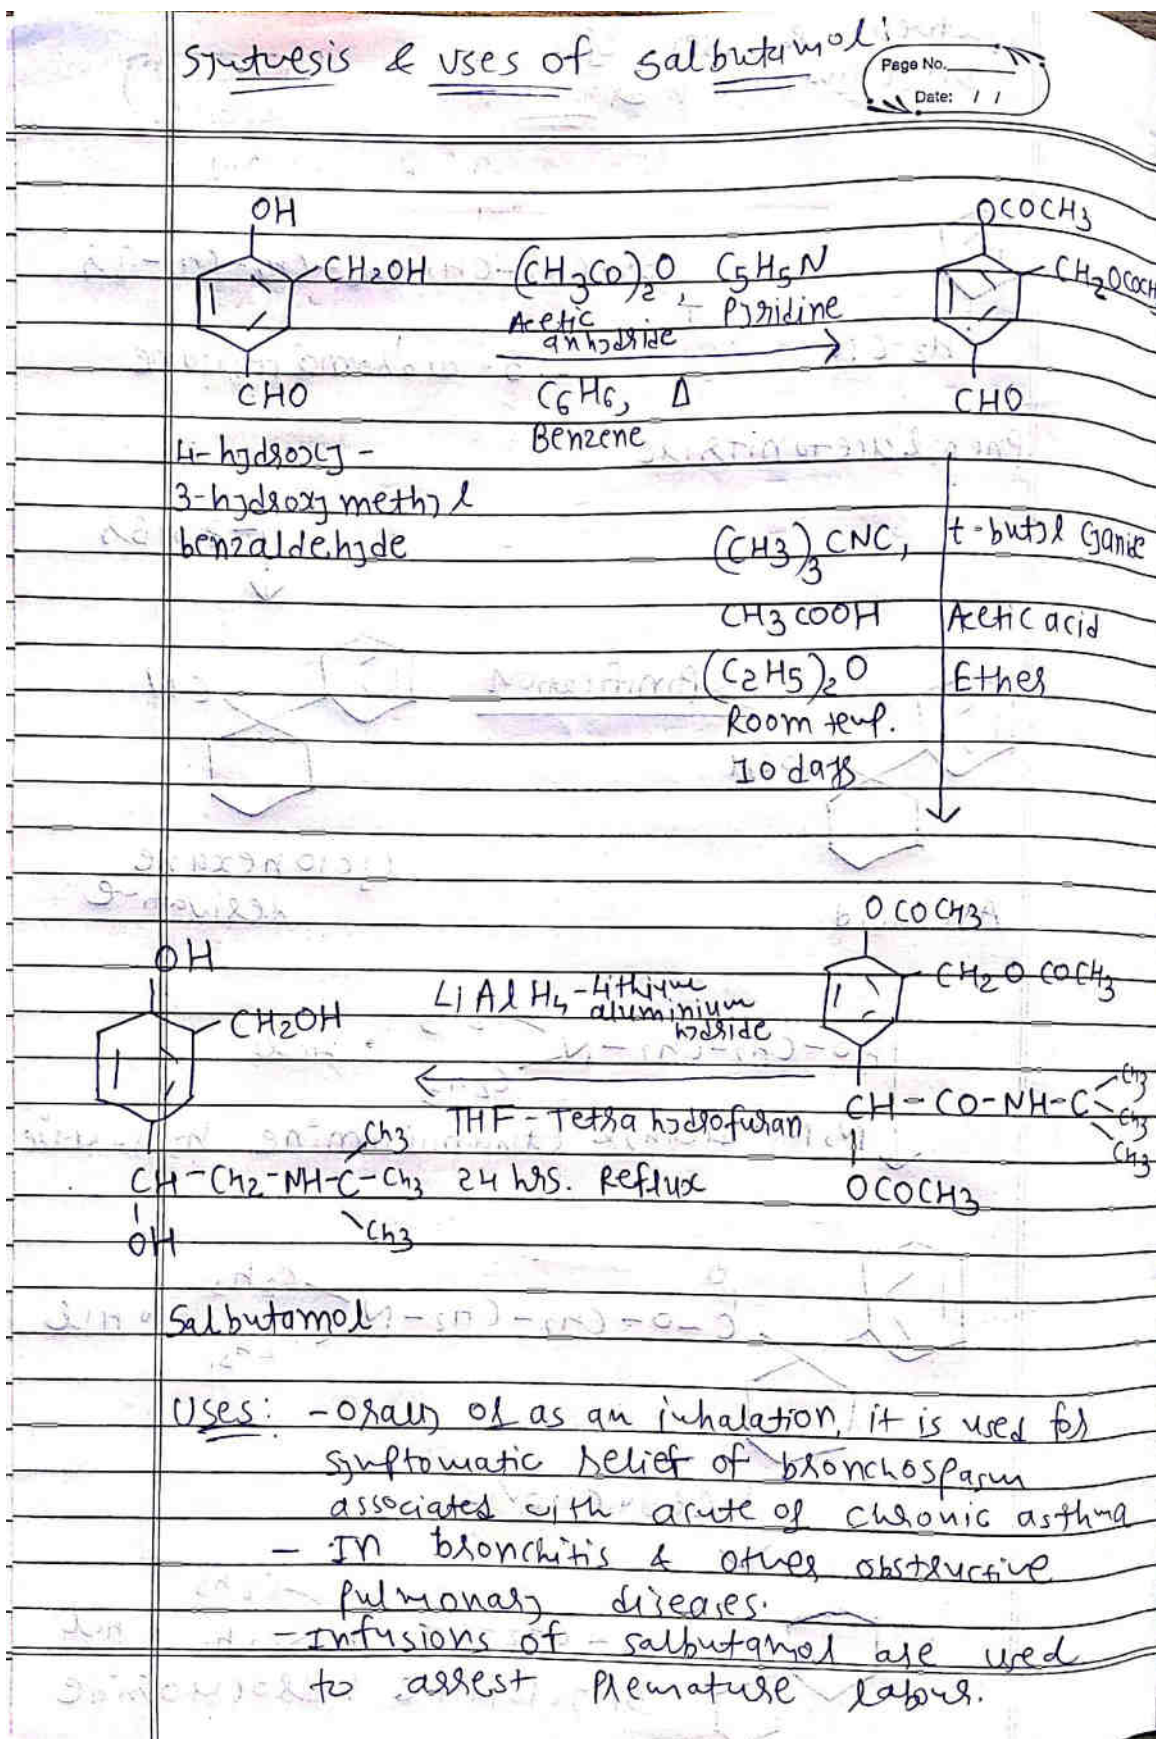 Synthesis & uses of Salbutamol:
Page No.
Date: / /
OH
CH2OH
CHO
(CH3CO)2O, C5H5N
Acetic anhydride
Pyridine
C6H6, Δ
Benzene
OCOCH3
CH2OCOCH
CHO
4-hydroxy-
3-hydroxy methyl
benzaldehyde
(CH3)3CNC, t-butyl Cyanide
CH3COOH Acetic acid
(C2H5)2O Ether
Room temp.
10 days
OCOCH3
CH2OCOCH3
CH-CO-NH-C
CH3
CH3
CH3
OCOCH3
LiAlH4-Lithium
aluminium
hydride
THF-Tetra hydrofuran
24 hrs. Reflux
OH
CH2OH
CH3
CH-CH2-NH-C-CH3
OH
CH3
Salbutamol
Uses: - Orally or as an inhalation, it is used for
symptomatic relief of bronchospasm
associated with acute or chronic asthma
- In bronchitis & other obstructive
pulmonary diseases.
- Infusions of salbutamol are used
to arrest Premature labour.